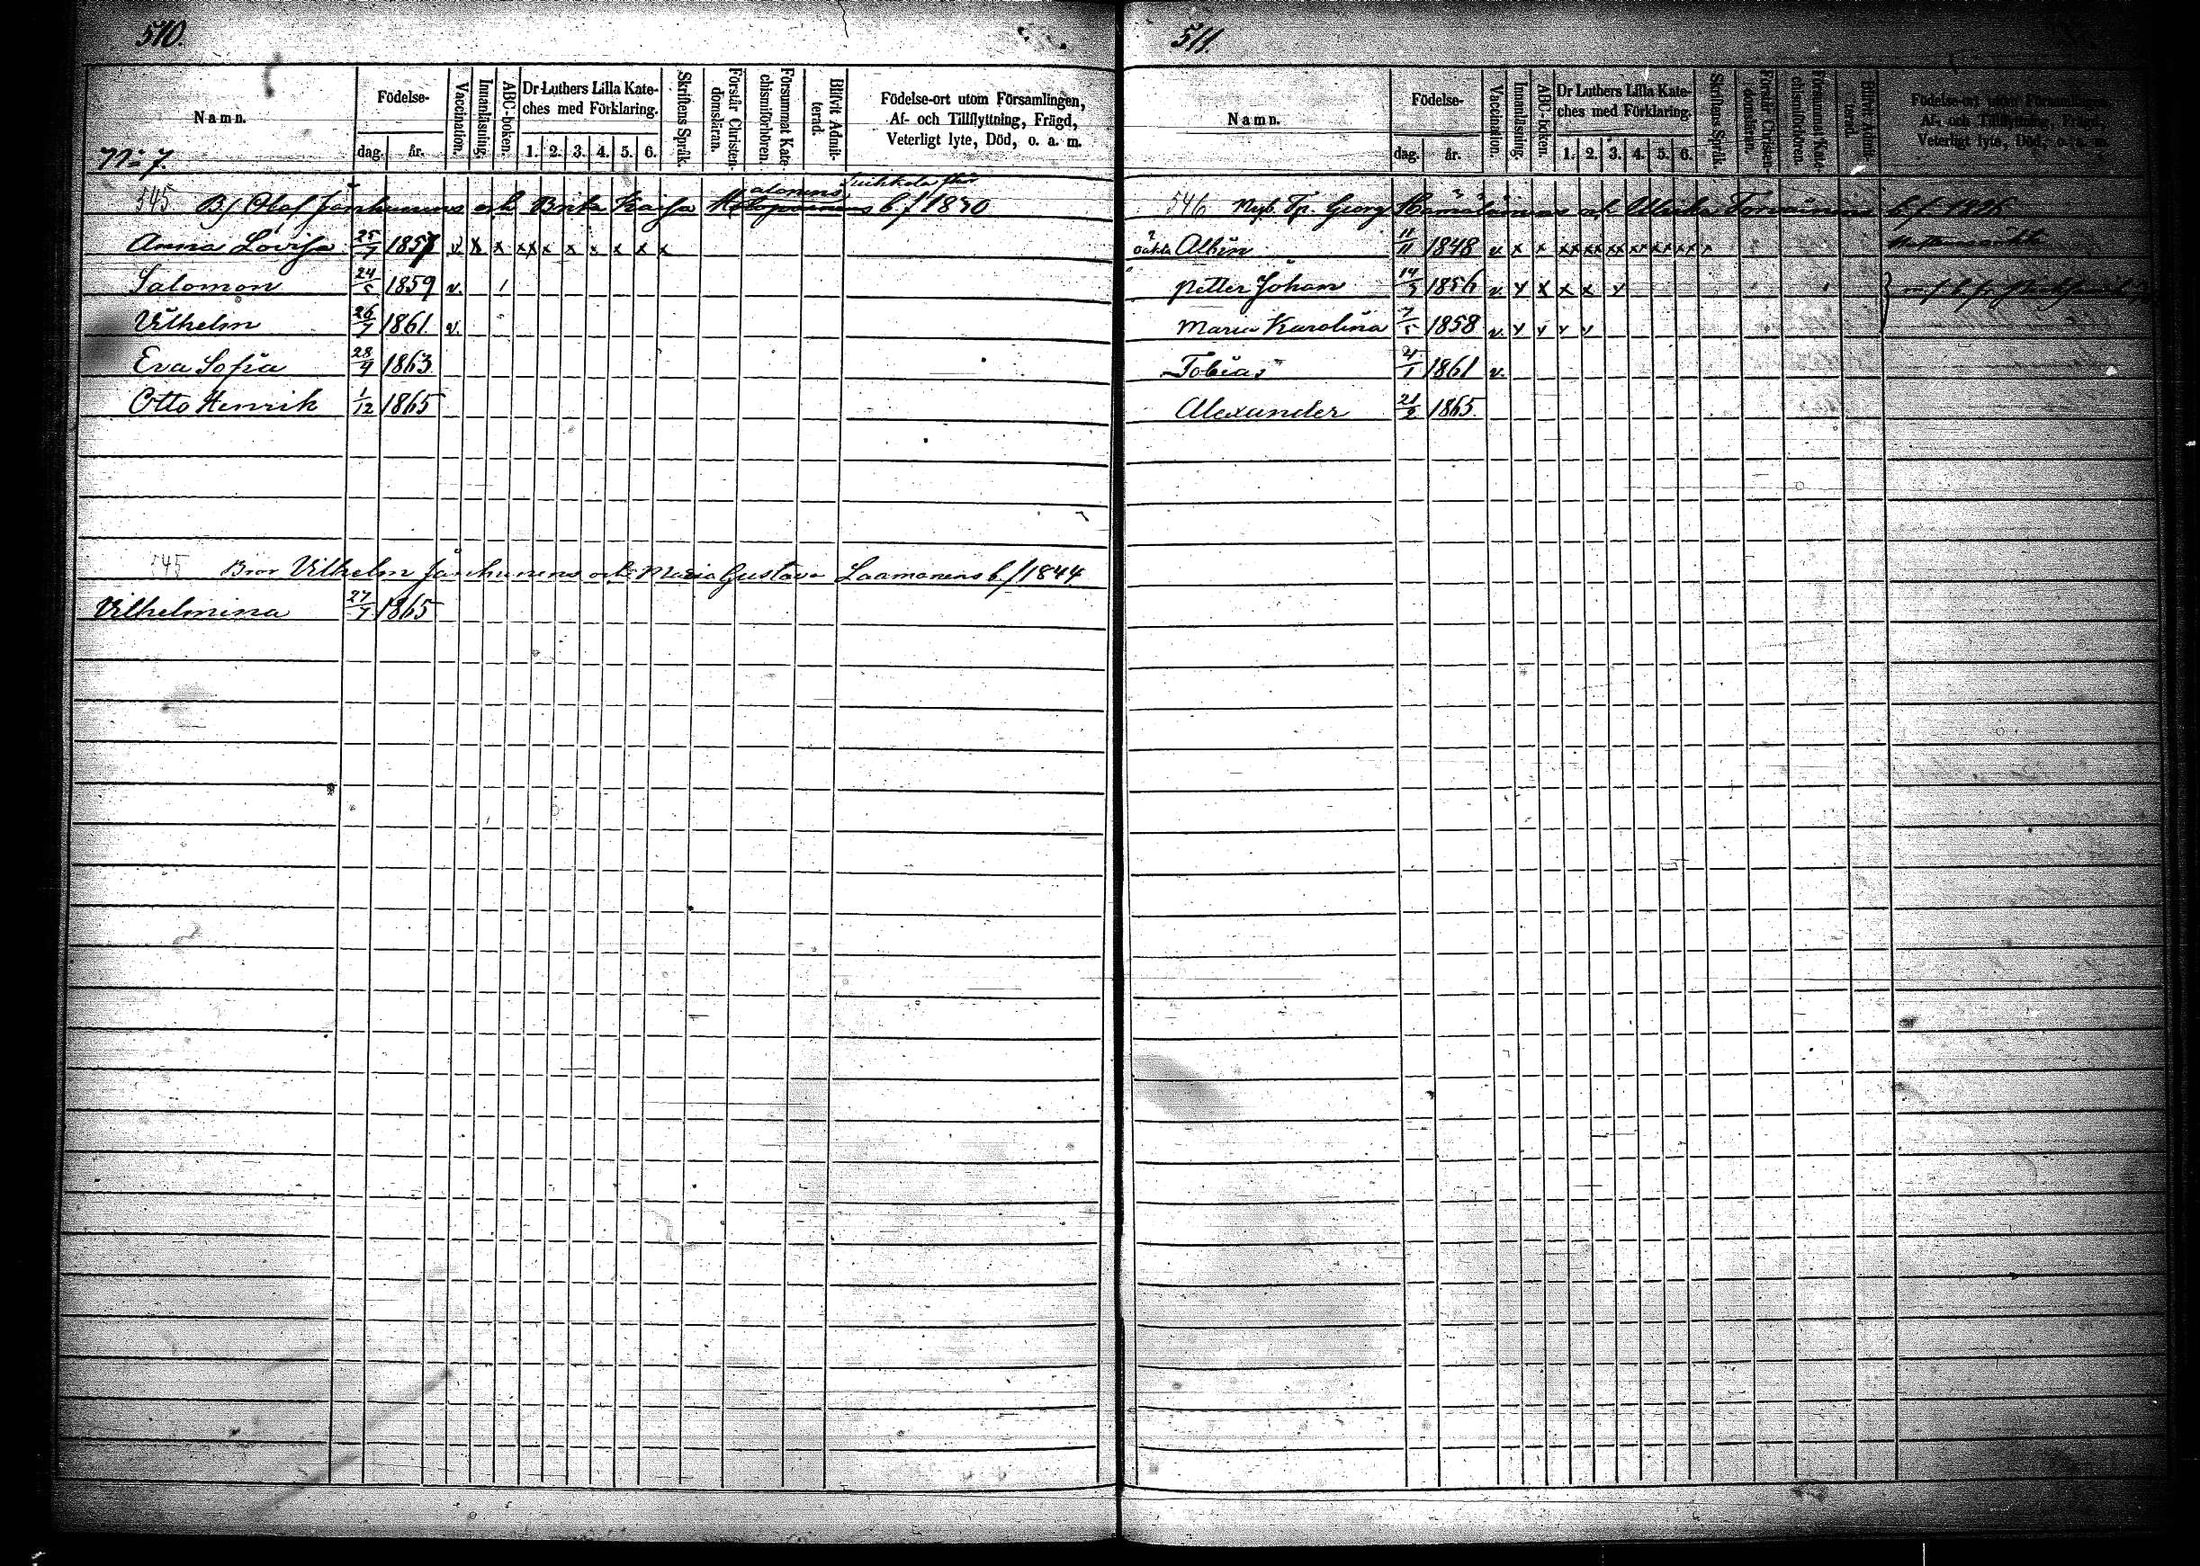 510.
Namn.
Födelse-
dag. år.
Vaccination.
Innanläsning.
ABC-boken.
Dr Luthers Lilla Kate-
ches med Förklaring.
1. 2. 3. 4. 5. 6.
Skriftens Språk.
Förstår Christen-
domsläran.
Försummat Kate-
chismiförhören.
Blifvit Admit-
terad.
Födelse-ort utom Församlingen,
Af- och Tillflyttning, Frägd,
Veterligt lyte, Död, o. a. m.
No 7.
545 Olof Jänhunens och Brita Kaisa b. f. 1830
Anna Lovisa 25/7 1857 v. x x xx x x x x x x
Salomon 24/5 1859 v. /
Vilhelm 26/7 1861 v.
Eva Sofia 28/9 1863
Otto Henrik 1/12 1865
545 Bror Vilhelm Jänhunens och Maria Gustava Laamanens b. f. 1844
Vilhelmina 27/7 1865
511.
Namn.
Födelse-
dag. år.
Vaccination.
Innanläsning.
ABC-boken.
Dr Luthers Lilla Kate-
ches med Förklaring.
1. 2. 3. 4. 5. 6.
Skriftens Språk.
Förstår Christen-
domsläran.
Försummat Kate-
chismiförhören.
Blifvit Admit-
terad.
Födelse-ort utom Församlingen,
Af- och Tillflyttning, Frägd,
Veterligt lyte, Död, o. a. m.
546 Georg Hämäläinens och Ulrika b. f.
oäkta Albin 11/11 1848 v. x x xx xx xx xx xx xx x
Petter Johan 14/3 1856 v. x x x x x
Maria Karolina 7/5 1858 v. x x x x
Tobias 4/1 1861 v.
Alexander 21/2 1865